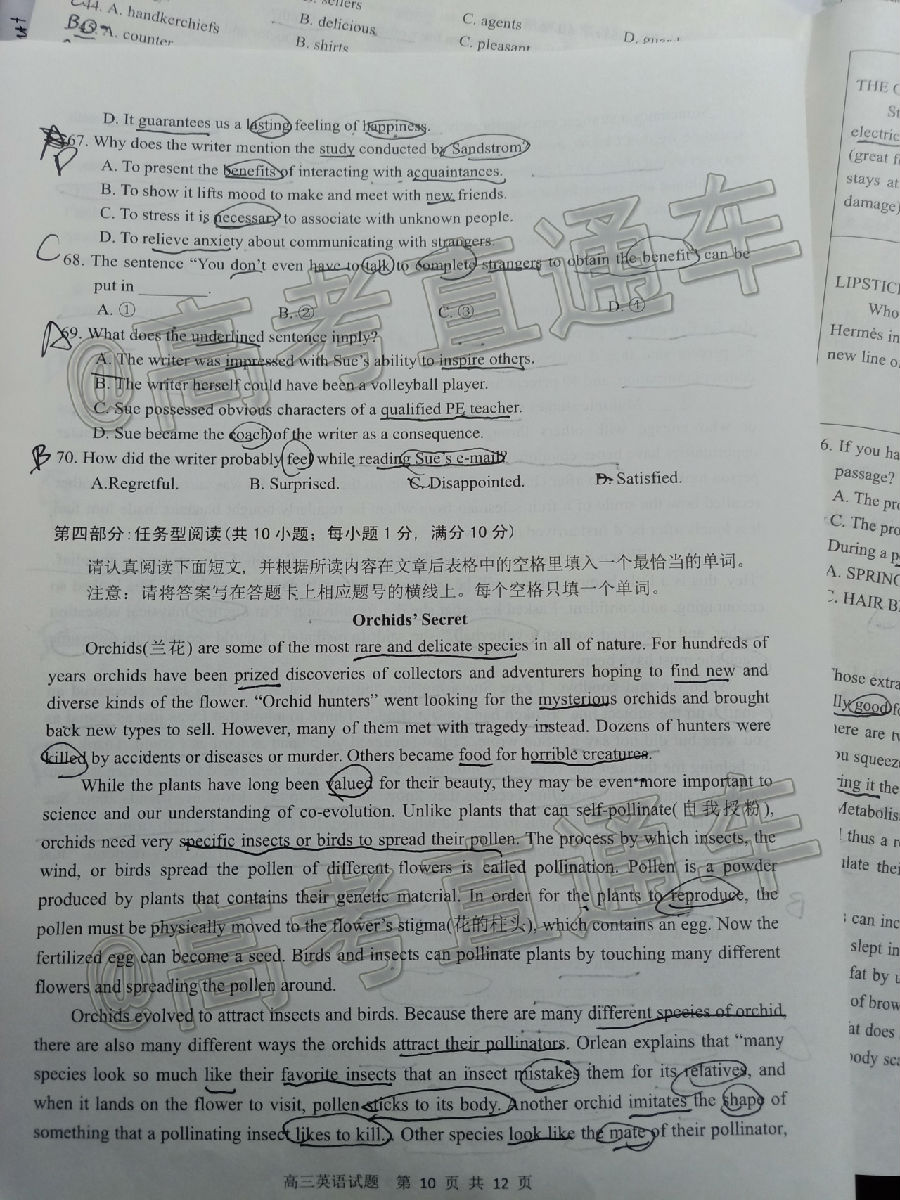 44. A. handkerchiefs B. delicious C. agents
A. counter B. shirts C. pleasant D.
D. It guarantees us a lasting feeling of happiness.
67. Why does the writer mention the study conducted by Sandstrom?
A. To present the benefits of interacting with acquaintances.
B. To show it lifts mood to make and meet with new friends.
C. To stress it is necessary to associate with unknown people.
D. To relieve anxiety about communicating with strangers.
C
68. The sentence “You don’t even have to talk to complete strangers to obtain the benefit” can be
put in ________.
A. ① B. ② C. ③ D. ④
A
69. What does the underlined sentence imply?
A. The writer was impressed with Sue’s ability to inspire others.
B. The writer herself could have been a volleyball player.
C. Sue possessed obvious characters of a qualified PE teacher.
D. Sue became the coach of the writer as a consequence.
B
70. How did the writer probably feel while reading Sue’s e-mail?
A.Regretful. B. Surprised. C. Disappointed. D. Satisfied.
第四部分：任务型阅读(共 10 小题；每小题 1 分，满分 10 分)
请认真阅读下面短文，并根据所读内容在文章后表格中的空格里填入一个最恰当的单词。
注意：请将答案写在答题卡上相应题号的横线上。每个空格只填一个单词。
Orchids’ Secret
Orchids(兰花) are some of the most rare and delicate species in all of nature. For hundreds of
years orchids have been prized discoveries of collectors and adventurers hoping to find new and
diverse kinds of the flower. “Orchid hunters” went looking for the mysterious orchids and brought
back new types to sell. However, many of them met with tragedy instead. Dozens of hunters were
killed by accidents or diseases or murder. Others became food for horrible creatures.
While the plants have long been valued for their beauty, they may be even more important to
science and our understanding of co-evolution. Unlike plants that can self-pollinate(自我授粉),
orchids need very specific insects or birds to spread their pollen. The process by which insects, the
wind, or birds spread the pollen of different flowers is called pollination. Pollen is a powder
produced by plants that contains their genetic material. In order for the plants to reproduce, the
pollen must be physically moved to the flower’s stigma(花的柱头), which contains an egg. Now the
fertilized egg can become a seed. Birds and insects can pollinate plants by touching many different
flowers and spreading the pollen around.
Orchids evolved to attract insects and birds. Because there are many different species of orchid,
there are also many different ways the orchids attract their pollinators. Orlean explains that “many
species look so much like their favorite insects that an insect mistakes them for its relatives, and
when it lands on the flower to visit, pollen sticks to its body. Another orchid imitates the shape of
something that a pollinating insect likes to kill. Other species look like the mate of their pollinator,
高三英语试题 第 10 页 共 12 页
@高考直通车
@高考直通车
THE
electric
(great
stays at
damage)
LIPSTIC
Who
Hermès in
new line o
6. If you ha
passage?
A. The pro
C. The pro
During a p
A. SPRING
C. HAIR B
those extra
lly good f
here are tw
ou squeeze
ing it the
Metabolis
thus a r
ulate thei
can inc
slept in
fat by u
of brow
at does
body sca